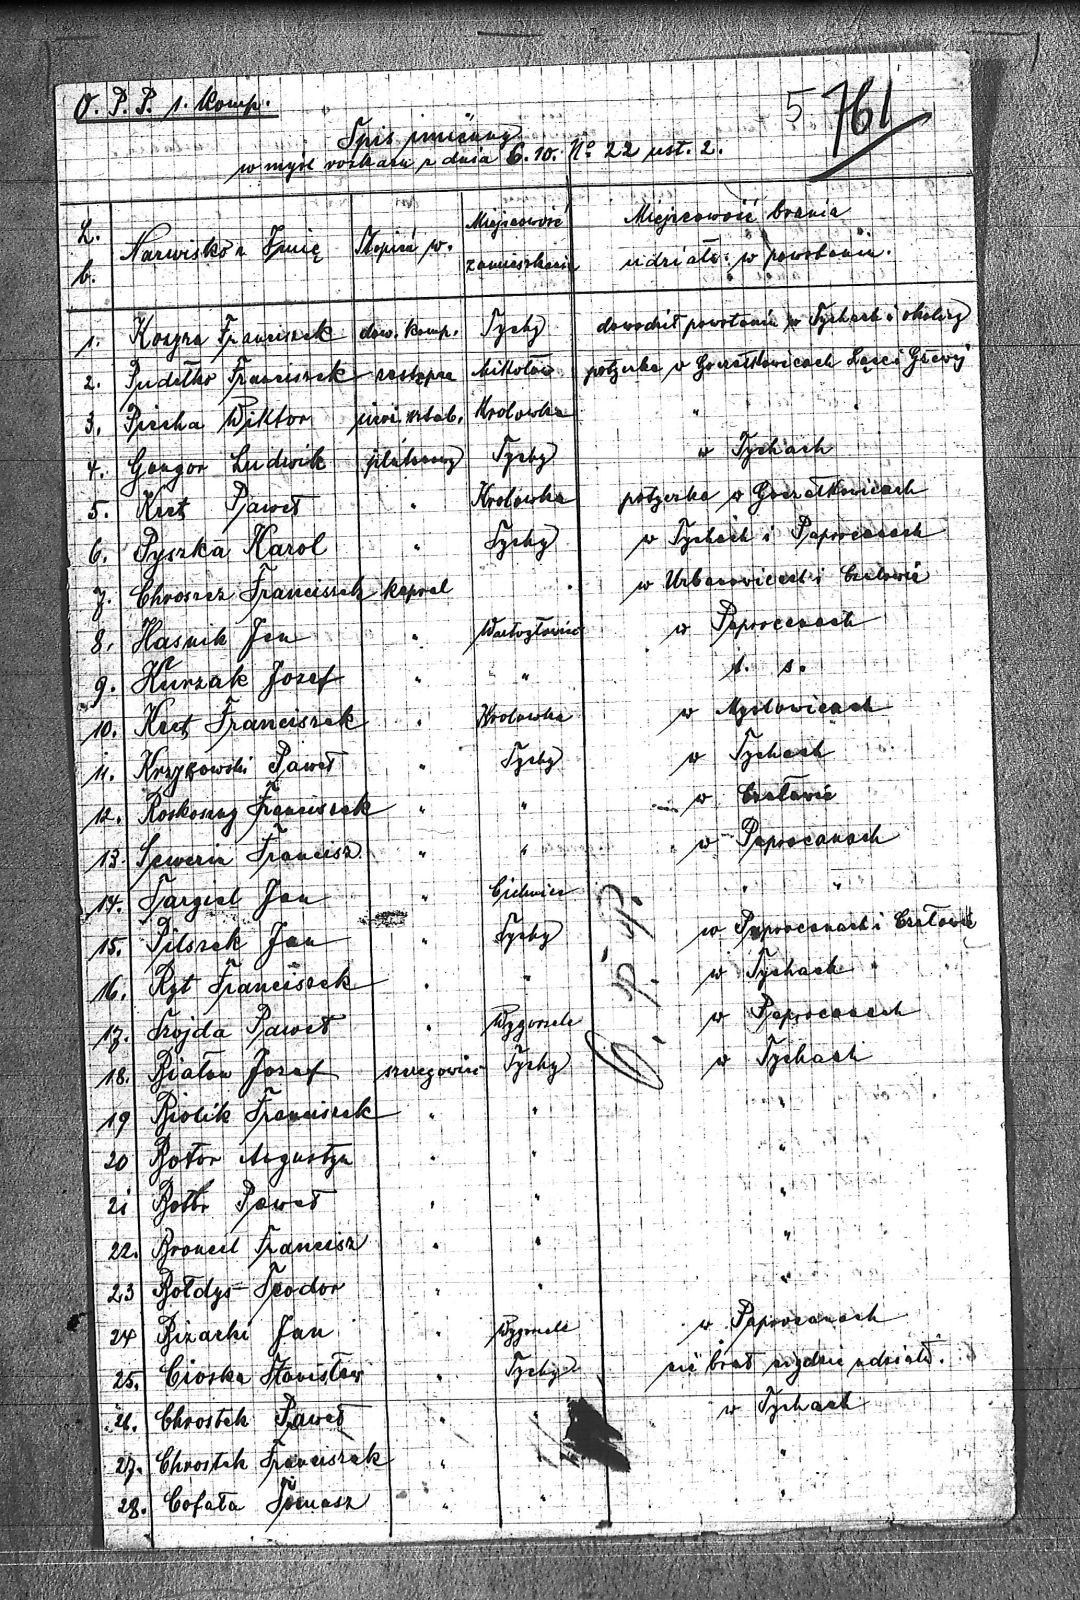 O. P. P. 1. Komp.
5 761
Spis imienny
w myśl rozkazu z dnia 6.10. No 22 ust. 2.
L. b. Nazwisko i Imię Stopień w. Miejscowość zamieszkania Miejscowość brania udziału w powstaniu.
1. Kosyra Franciszek dow. komp. Tychy dowodził powstanie w Tychach i okolicy
2. Pudełko Franciszek zastępca Mikołów potyczka w Goczałkowicach
3. Piecha Wiktor Krolowka " "
4. Gongor Ludwik plutonowy Tychy w Tychach
5. Kret Paweł " Krolowka potyczka w Goczałkowicach
6. Pyszka Karol " Tychy w Tychach i Paprocanach
7. Chroszcz Franciszek kapral " w Urbanowicach i Czułowie
8. Hasnik Jan " w Paprocanach
9. Kurzak Jozef " " t. s.
10. Kret Franciszek " Krolowka w Mysłowicach
11. Krzykowski Paweł " Tychy w Tychach
12. Roskoszny Franciszek " " w Czułowie
13. Seweria Francisz " " w Paprocanach
14. Targiel Jan " Cielmice " "
15. Pilszek Jan " Tychy w Paprocanach i Czułowie
16. Ryt Franciszek " " w Tychach
17. Szojda Paweł " Wygorzele w Paprocanach
18. Białon Jozef szeregowiec Tychy w Tychach
19 Biolik Franciszek " " "
20 Botor Augustyn " " "
21 Botor Paweł " " "
22. Broncel Francisz " " "
23 Bołdys Teodor " " "
24 Bizacki Jan " Wygorzele w Paprocanach
25. Cioska Stanisław " Tychy nie brał nigdzie udziału.
26. Chrostek Paweł " " w Tychach
27. Chrostek Franciszek " "
28. Cofała Tomasz " " "